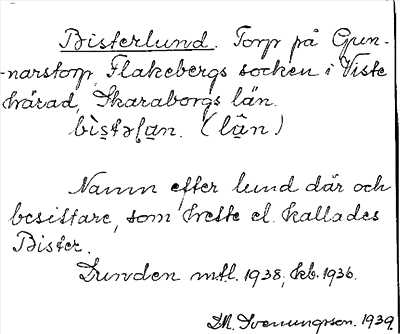 Bisterlund. Torp på Gun-
-narstorp, Flakebergs socken i Viste
härad, Skaraborgs län.
bìstəɭun. (lûn)
Namn efter lund där och
besittare, som hette el. kallades
Bister.
Lunden mtl. 1938, kb. 1936.
D.A. Svenungson. 1939.